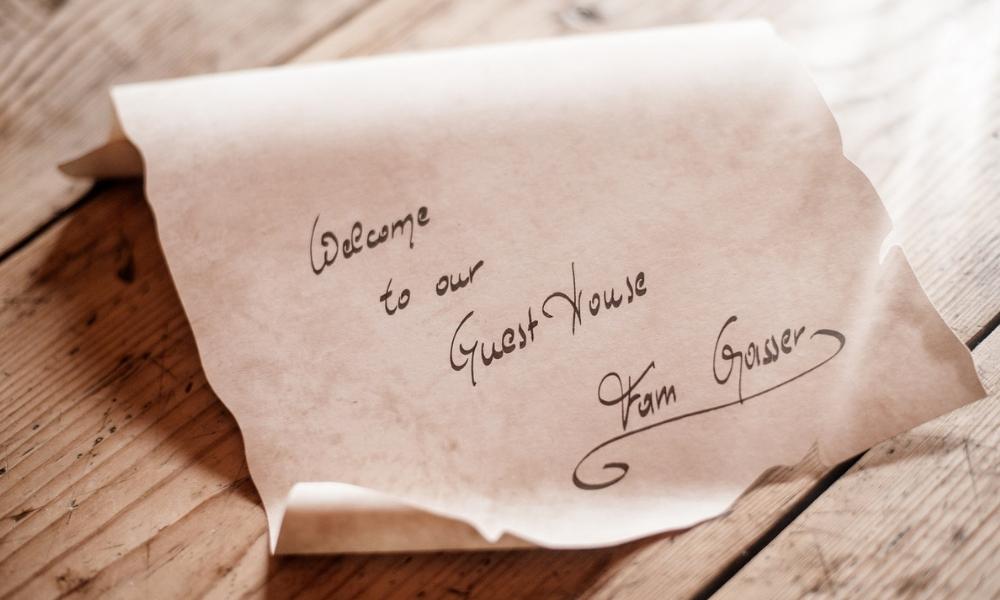 Welcome
to our
Guest House
Fam Gasser